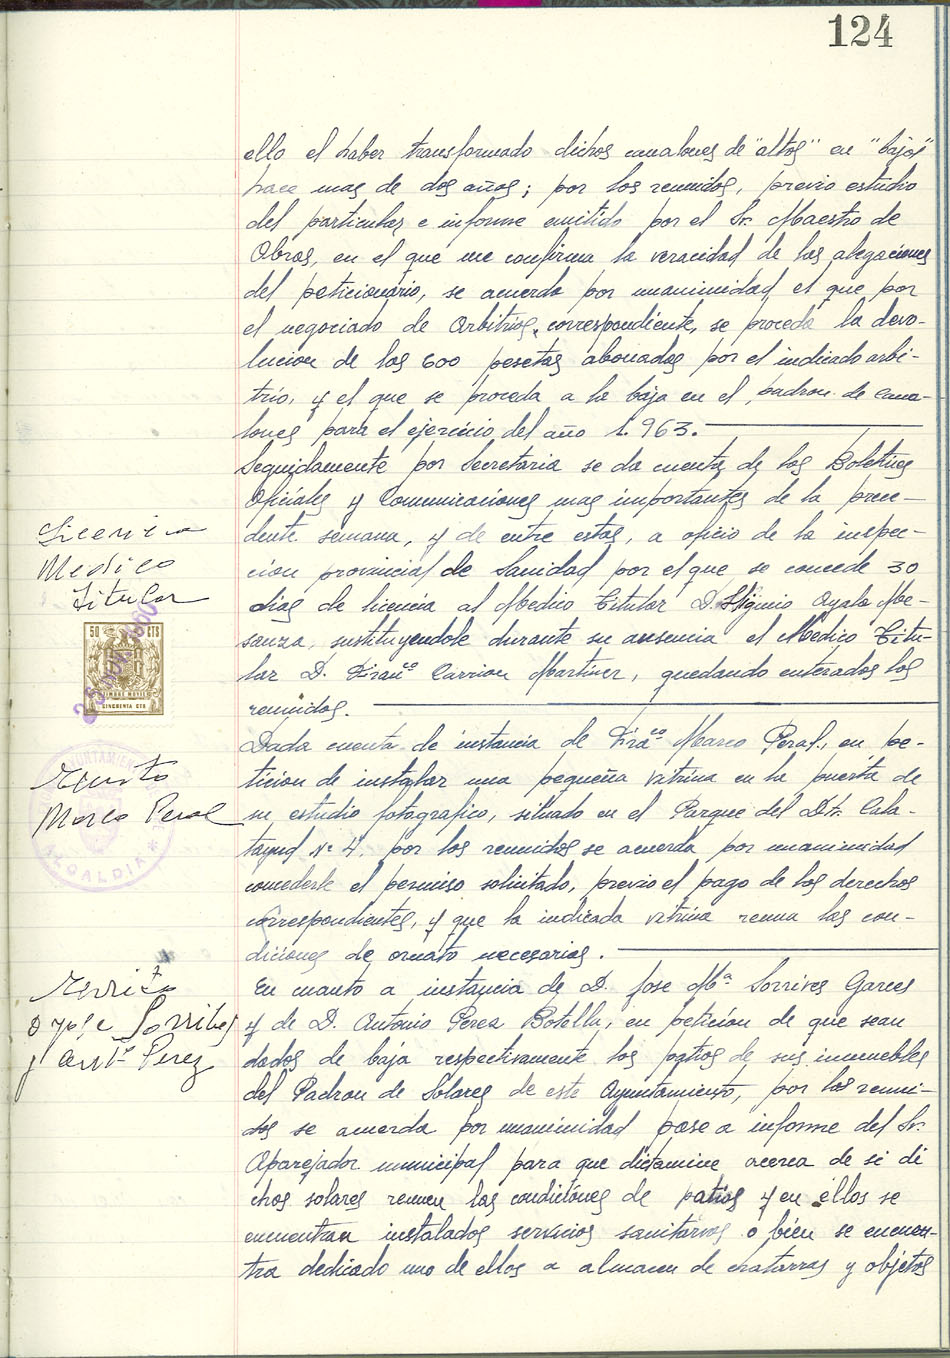 124
ello el haber transformado dichos canalones de "altos" en "bajos"
hace mas de dos años; por los reunidos, previo estudio
del particular e informe emitido por el Sr. Maestro de
Obras, en el que me confirma la veracidad de las alegaciones
del peticionario, se acuerda por unanimidad, el que por
el negociado de Arbitrios, correspondiente, se proceda la devo-
lucion de las 600 pesetas abonadas por el indicado arbi-
trio, y el que se proceda a la baja en el padron de cana-
lones para el ejercicio del año 1.963.
Seguidamente por Secretaria se da cuenta de los Boletines
Oficiales y Comunicaciones mas importantes de la prece-
dente semana, y de entre estas, a oficio de la inspec-
cion provincial de Sanidad por el que se concede 30
dias de licencia al Medico Titular D. Higinio Ayala Me-
sanza, sustituyendole durante su ausencia el Medico Titu-
lar D. Franco Carrion Martinez, quedando enterados los
reunidos.
Licencia
Medico
Titular
50 CTS
TIMBRE MOVIL
CINCUENTA CTS
Dada cuenta de instancia de Franco Marco Peral, en pe-
ticion de instalar una pequeña vitrina en la puerta de
su estudio fotografico, situado en el Parque del Dtr. Cala-
tayud Nº 4, por los reunidos se acuerda por unanimidad
concederle el permiso solicitado, previo el pago de los derechos
correspondientes, y que la indicada vitrina reuna las con-
diciones de ornato necesarias.
Marco Peral
AYUNTAMIENTO
ALCALDIA
En cuanto a instancia de D. Jose Mª Sorrives Garces
y de D. Antonio Perez Botella, en peticion de que sean
dados de baja respectivamente los patios de sus inmuebles
del Padron de Solares de este Ayuntamiento, por los reuni-
dos se acuerda por unanimidad pase a informe del Sr.
Aparejador municipal para que dictamine acerca de si di
chos solares reunen las condiciones de patios y en ellos se
encuentran instalados servicios sanitarios o bien se encuen-
tra dedicado uno de ellos a almacen de chatarras y objetos
D Jose Sorribes
y Antº Perez